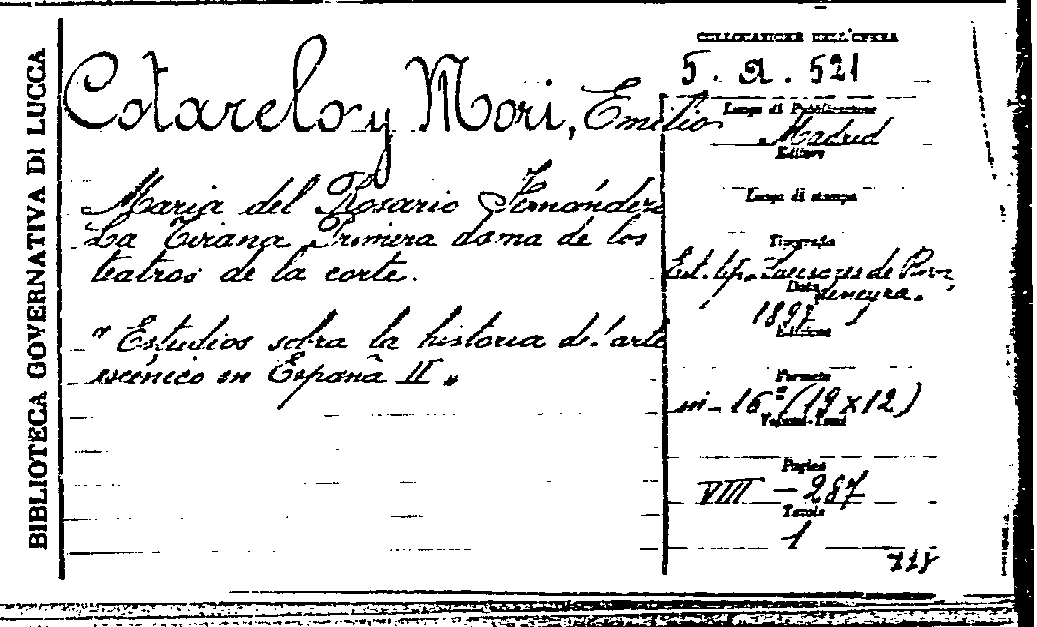 BIBLIOTECA GOVERNATIVA DI LUCCA
Cotarelo y Mori, Emilio
Maria del Rosario Fernández
La Tirana Primera dama de los
teatros de la corte.
"Estudios sobra la historia del arte
escénico en España II"
COLLOCAZIONE DELL'OPERA
5. a. 521
Luogo di Pubblicazione
Madrid
Editore
Luogo di stampa
Tipografia
Est. tip. Sucesores de Riva
Data
deneyra.
1897
Edizione
Formato
in-16º (19x12)
Volumi-Tomi
Pagine
VIII - 287
Tavole
1